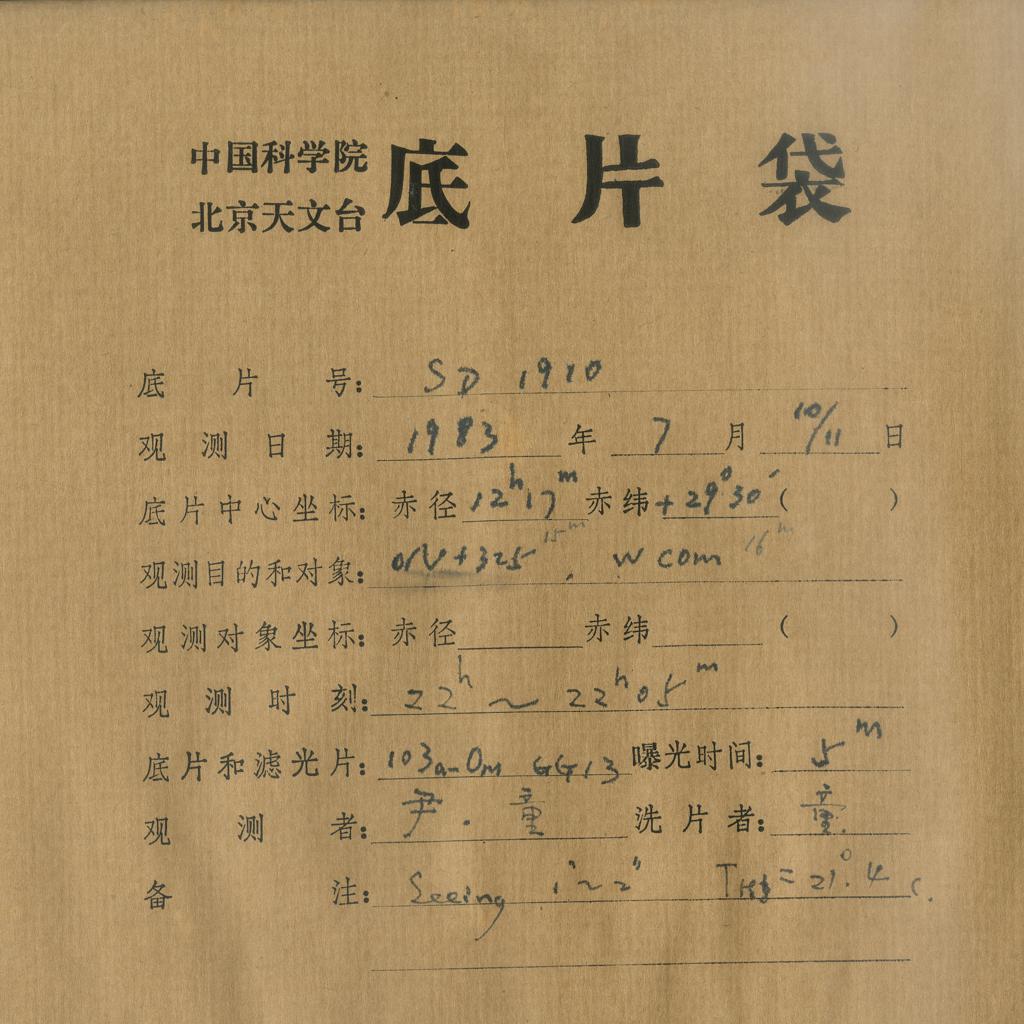 中国科学院
北京天文台
底片袋
底片号: SD 1910
观测日期: 1983 年 7 月 10/11 日
底片中心坐标: 赤径 12h17m 赤纬 +29°30′ ( )
观测目的和对象: ON+325 15m, W com 16m
观测对象坐标: 赤径 赤纬 ( )
观测时刻: 22h ~ 22h05m
底片和滤光片: 103a-O GG13 曝光时间: 5m
观测者: 尹.童 洗片者: 童
备注: Seeing 1"~2" = 21°.4 C